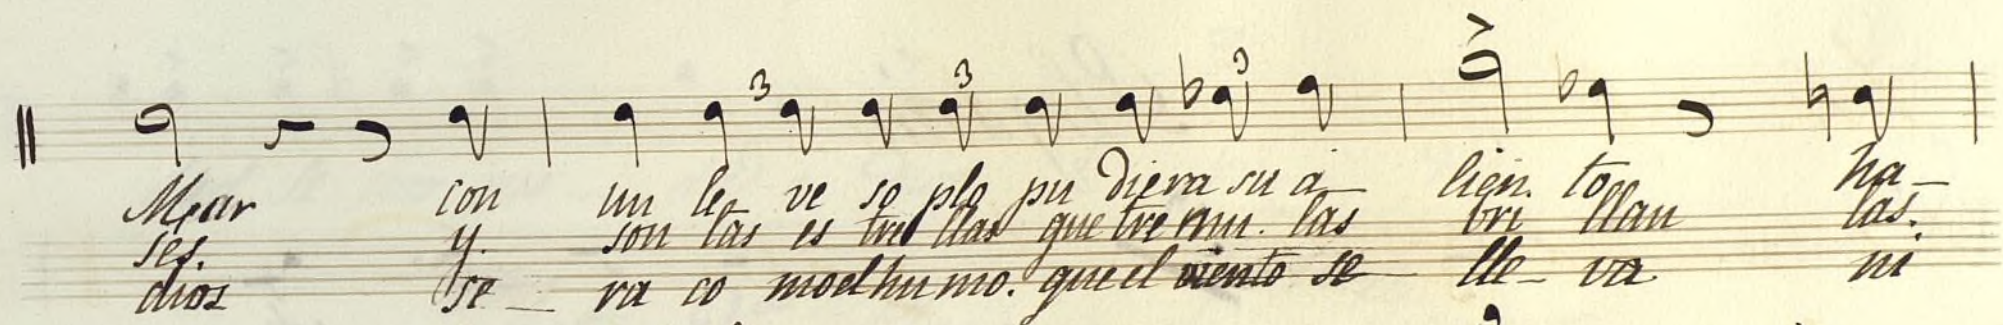 3 3 3
Mear con un le ve so plo pu diera su a lien. to ha
ses. y. son las es tre llas que tre mu. las bri llan las.
dios se ra co mo el hu mo. que el viento se lle va ni